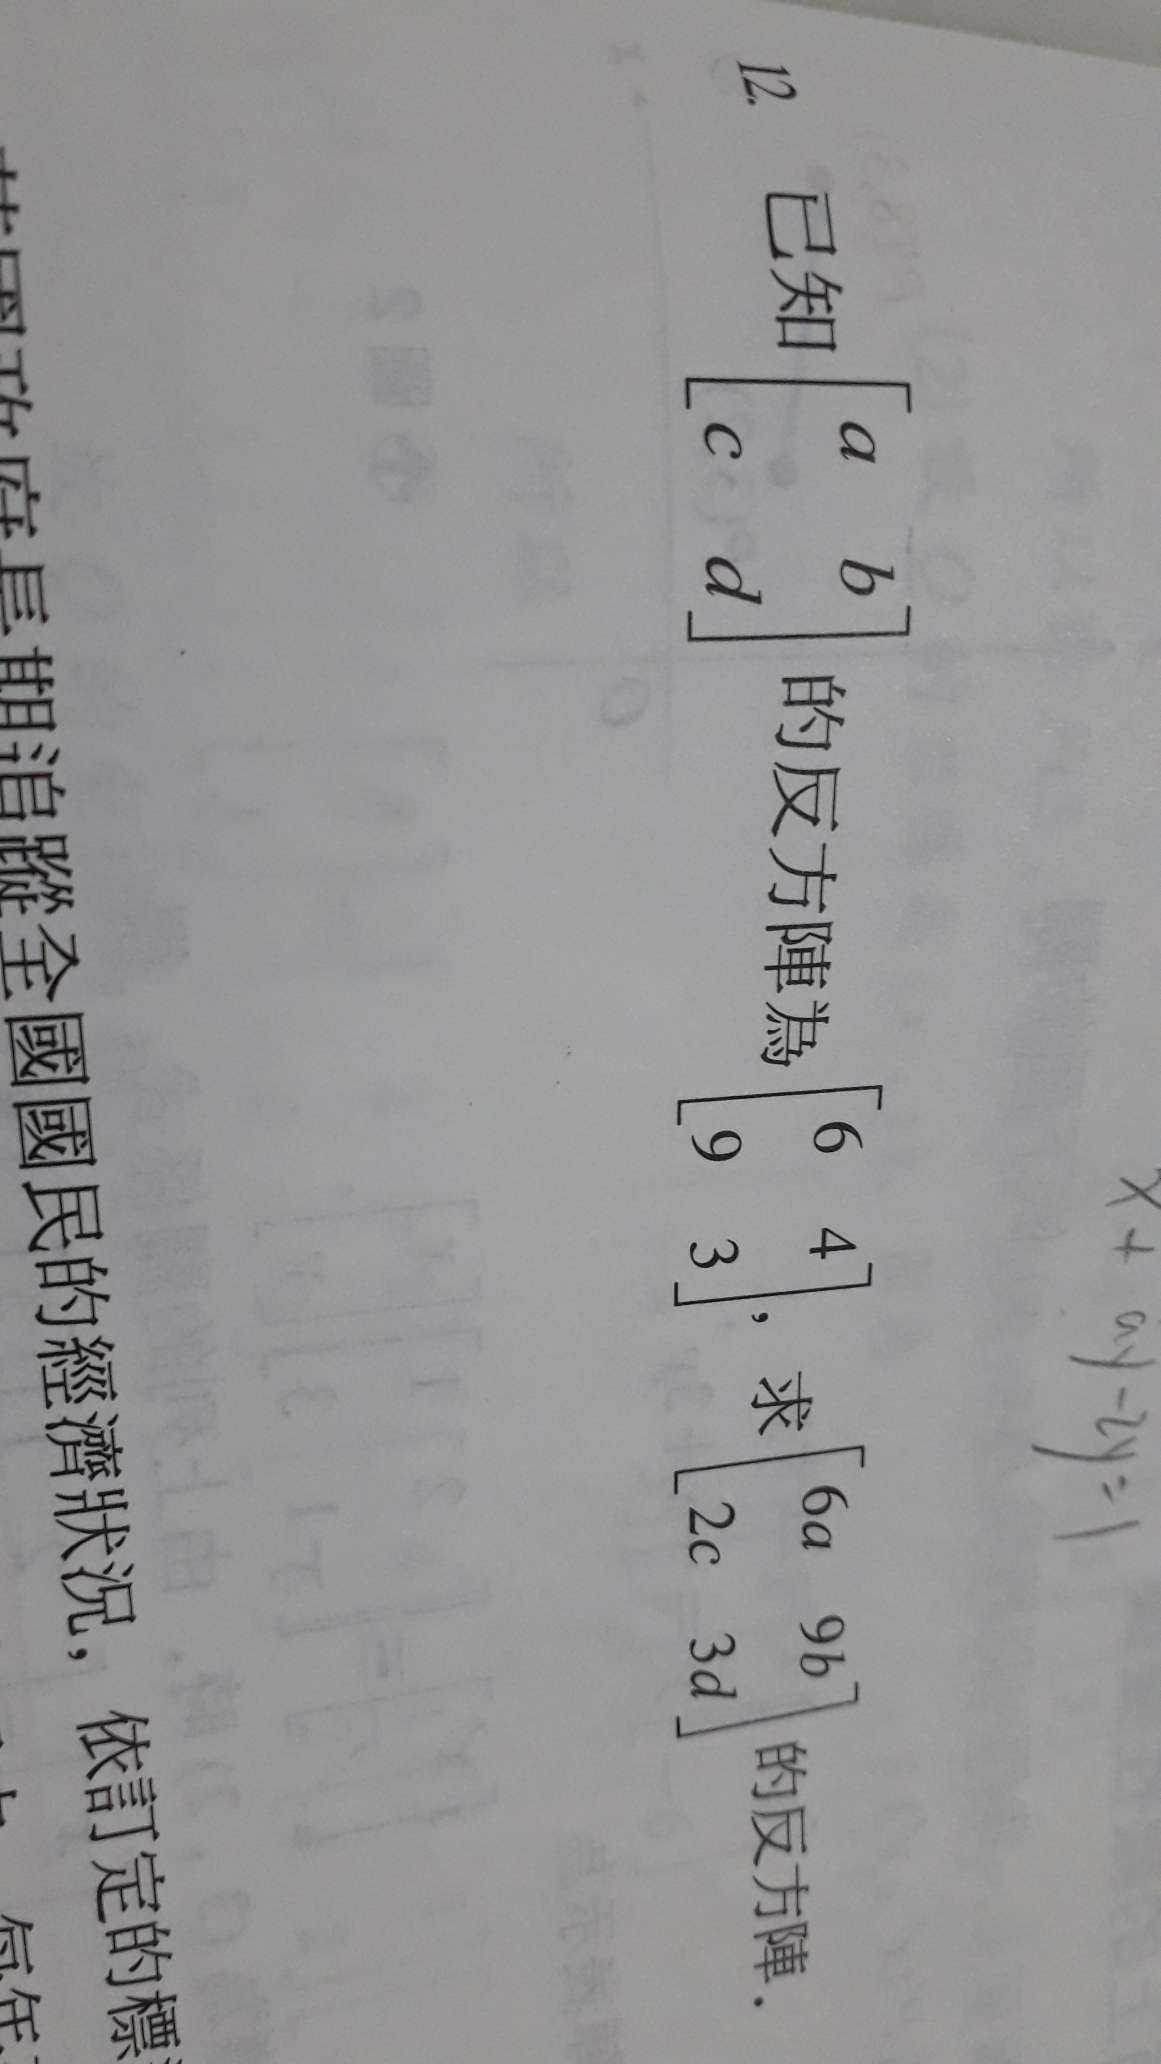 x + ay - 2y = 1
12. 已知 [a b; c d] 的反方陣為 [6 4; 9 3], 求 [6a 9b; 2c 3d] 的反方陣.
政府長期追蹤全國國民的經濟狀況, 依訂定的標
每年